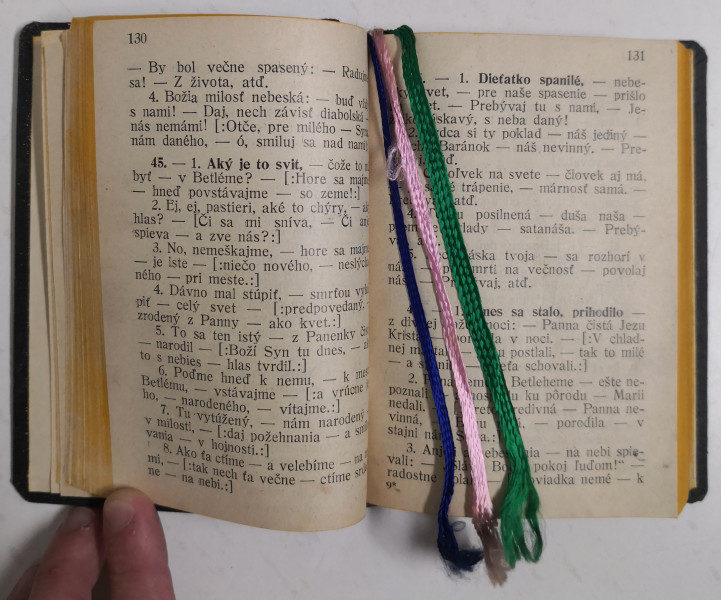 130
— By bol večne spasený: — Radujme
sa! — Z života, atď.
4. Božia milosť nebeská: — buď vž
s nami! — Daj, nech závisť diabolská —
nás nemámi! [:Otče, pre milého — Syn
nám daného, — ó, smiluj sa nad nami
45. — 1. Aký je to svit, — čože to m
byť — v Betléme? — [:Hore sa majm
— hneď povstávajme — so zeme!:]
2. Ej, ej, pastieri, aké to chýry, — ak
hlas? — [Či sa mi sníva, — Či an
spieva — a zve nás?:]
3. No, nemeškajme, — hore sa majm
— je iste — [:niečo nového, — neslých
ného — pri meste.:]
4. Dávno mal stúpiť, — smrťou vyk
piť — celý svet — [:predpovedaný, —
zrodený z Panny — ako kvet.:]
5. To sa ten istý — z Panenky čis
— narodil — [:Boží Syn tu dnes, —
to s nebies — hlas tvrdil.:]
6. Poďme hneď k nemu, — k mes
Betlému, — vstávajme — [:a vrúcne
ho, — narodeného, — vítajme.:]
7. Tu vytúžený, — nám narodený
v milosti, — [:daj požehnania — a sml
vania — v hojnosti.:]
8. Ako ťa ctíme — a velebíme — na
mi, — [:tak nech ťa večne — ctíme srd
ne — na nebi.:]
131
— 1. Dieťatko spanilé, — nebe-
svet, — pre naše spasenie — prišlo
— Prebývaj tu s nami, — Je-
láskavý, s neba daný!
si ty poklad — náš jediný —
Baránok — náš nevinný. — Pre-
atď.
na svete — človek aj má,
trápenie, — márnosť samá. —
atď.
4. posilnená — duša naša —
vlady — satanáša. — Preby-
5. láska tvoja — sa rozhorí v
smrti na večnosť — povolaj
atď.
1. Dnes sa stalo, prihodilo —
z divnej moci: — Panna čistá Jezu
v noci. — [:V chlad-
postlali, — tak to milé
schovali.:]
2. Betleheme — ešte ne-
poznali ku pôrodu — Marii
nedali, predivná — Panna ne-
vinná, — porodila — v
stajni
3. — na nebi spie-
vali: — pokoj ľuďom!“ —
radostne nemé — k
9*